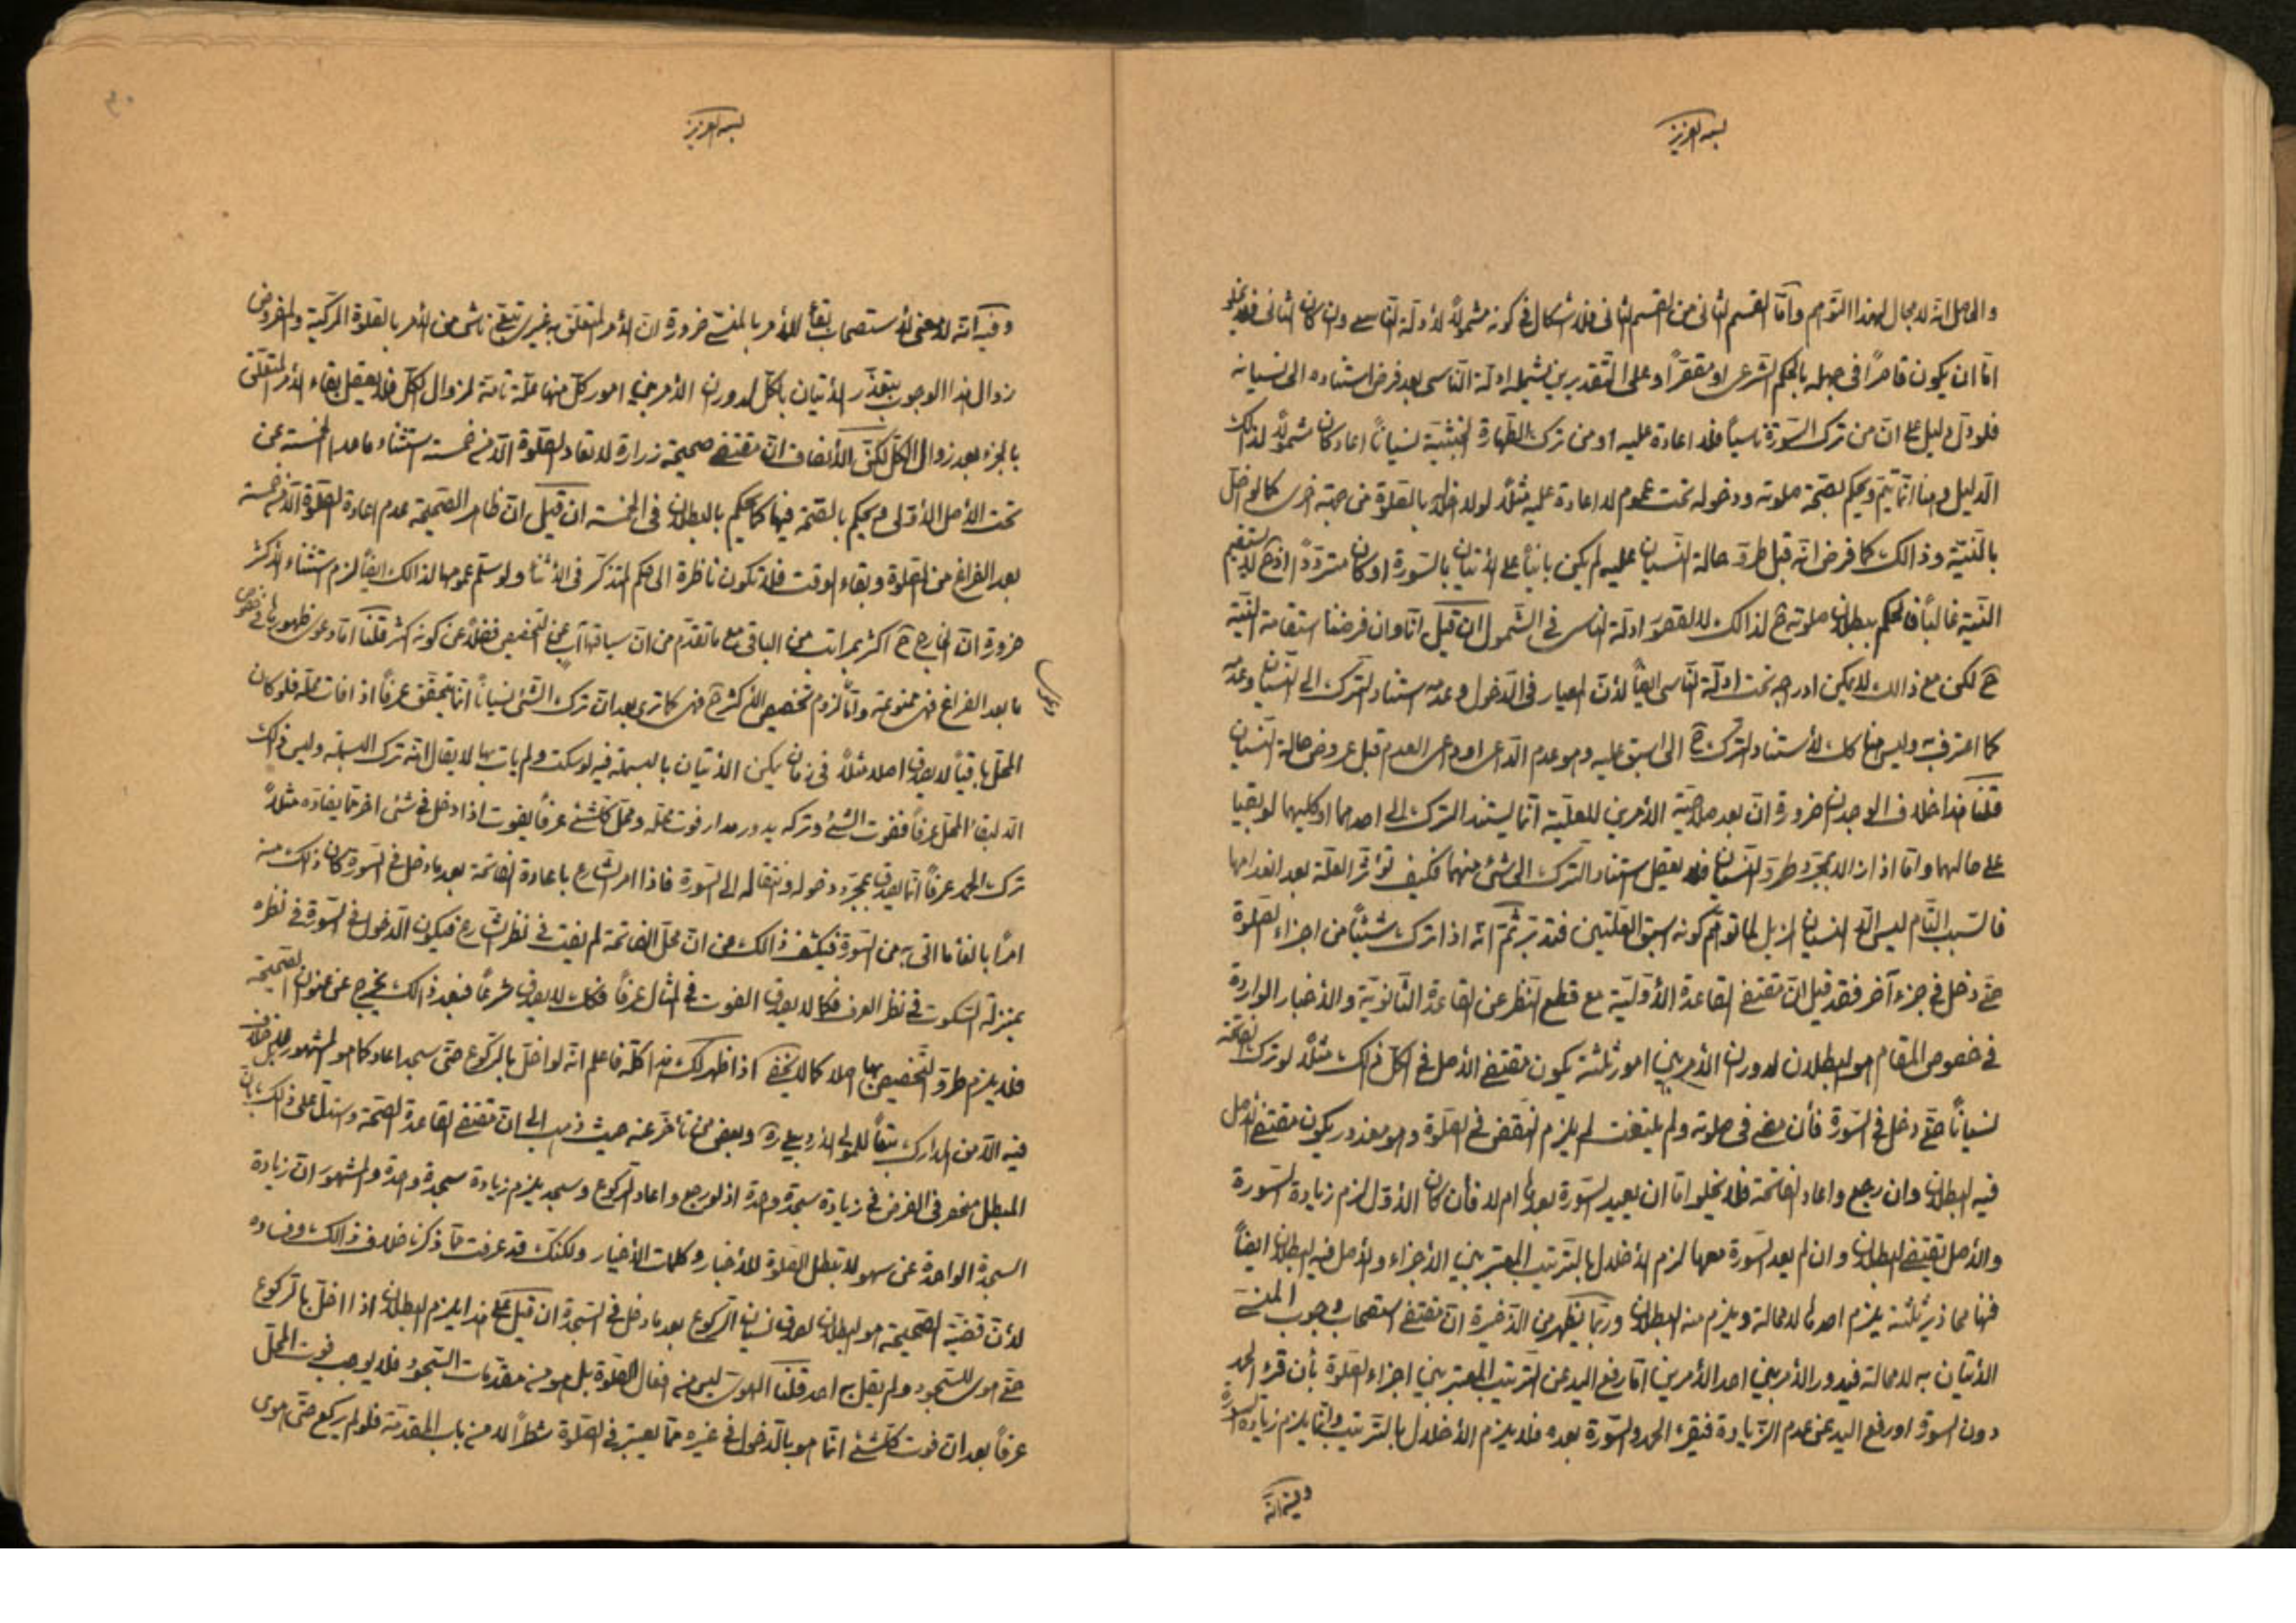 بسمه العزيز
والحاصل انه لا مجال لهذا التوهم وامّا القسم الثانى من القسم الثانى فلا اشكال فى كونه مشمولاً لأدلّة الناسى وان كان الثانى فلا يخلو
امّا ان يكون قاصراً فى جهله بالحكم الشرعى او مقصّراً وعلى التقديرين يشمله ادلّة الناسى بعد فرض استناده الى نسيانه
فلو دلّ دليل على انّ من ترك السّورة ناسياً فلا اعادة عليه او من ترك الطهارة الخبثيّة نسياناً اعاد كان مشمولاً لذالك
الدليل وهنا انّما يتمّ ويحكم بصحّة صلوته ودخوله تحت عموم لا اعادة عليه مثلاً لولا اخلال بالصّلوة من جهة اخرى كما لو اخلّ
بالنيّة وذالك كما فرض انّه قبل طروّ حالة النسيان عليه لم يكن بانياً على الأتيان بالسّورة او كان متردّداً اذ ح لا يستقيم
النيّة غالباً فالحكم ببطلان صلوته ح لذالك لا لقصور ادلّة الناسى فى الشمول ان قيل انّا وان فرضنا استقامة النيّة
ح لكن مع ذالك لا يمكن ادراجه تحت ادلّة الناسى ايضاً لأن المعيار فى الدخول وعدمه استناد الترك الى النسيان وعدمه
كما اعترف به وليس هنا كك لأستناد الترك ح الى اسبق عليه وهو عدم الداعى او داعى العدم قبل عروض حالة النسيان
قلنا هذا خلاف الوجدان ضرورة انّ بعد صلاحيّة الأمرين للعلّية انّما يستند الترك الى احدهما او كليهما لو بقيا
على حالهما وامّا اذا زالا بمجرّد طروّ النسيان فلا يعقل استناد الترك الى شئ منهما فكيف تؤثّر العلّة بعد انعدامها
فالسّبب التام ليس الّا النسيان ازيل لما توهّم كونه اسبق العلّتين فتدبّر ثمّ انّه اذا ترك شيئاً من اجزاء الصّلوة
حتّى دخل فى جزء آخر فقد قيل انّ مقتضى القاعدة الأوّليّة مع قطع النّظر عن القاعدة الثّانويّة والأخبار الواردة
فى خصوص المقام هو البطلان لدوران الأمر بين امور ثلثة يكون مقتضى الأصل فى الكلّ ذلك مثلاً لو ترك الفاتحة
نسياناً حتّى دخل فى السّورة فأن مضى فى صلوته ولم يلتفت لم يلزم النقض فى الصّلوة وهو معذور يكون مقتضى الأصل
فيه البطلان وان رجع واعاد الفاتحة فلا يخلوا امّا ان يعيد السّورة بعدها ام لا فأن كان الأوّل لزم زيادة السّورة
والأصل يقتضى البطلان وان لم يعد السّورة معها لزم الأخلال بالترتيب المعتبر بين الأجزاء والأصل فيه البطلان ايضاً
فهنا محاذير ثلثة يلزم احدها لا محالة ويلزم منه البطلان وربّما يظهر من الذّخيرة انّ مقتضى استصحاب وجوب المنسىّ
الأتيان به لا محالة فيدور الأمر بين احد الأمرين امّا رفع اليد عن الترتيب المعتبر بين اجزاء الصّلوة بأن قرء الحمد
دون السّورة او رفع اليد عن عدم الزّيادة فيقرء الحمد والسّورة بعده فلا يلزم الأخلال بالترتيب وانّما يلزم زيادة السورة
وفيه انّه
بسمه العزيز
وفيه انّه لا معنى لأستصحاب بقاء الأمر بالمنسىّ ضرورة انّ الأمر المتعلّق به غيرىّ تبعىّ ناش من الأمر بالصّلوة المركّبة والمفروض
زوال هذا الوجوب بتعذّر الأتيان بالكلّ لدوران الأمر بين امور كلّ منها علّة تامّة لزوال الكلّ فلا يعقل بقاء الأمر المتعلّق
بالجزء بعد زوال الكلّ لكنّ الأنصاف انّ مقتضى صحيحة زرارة لا تعاد الصّلوة الّا من خمسة استثناء ما عدا الخمسة عن
تحت الأصل الأوّلى ويحكم بالصّحة فيها كما يحكم بالبطلان فى الخمسة ان قيل انّ ظاهر الصّحيحة عدم اعادة الصّلوة الّا من خمسة
بعد الفراغ من الصّلوة وبقاء الوقت فلا تكون ناظرة الى حكم المتذكّر فى الأثناء ولو سلّم عمومها لذالك ايضاً لزم استثناء الأكثر
ضرورة انّ الخارج ح اكثر بمراتب من الباقى مع ما تقدّم من ان سياقها آب عن التخصيص فضلاً عن كونه اكثر قلنا امّا دعوى ظهورها فى خصوص
ما بعد الفراغ فهى ممنوعة وامّا لزوم تخصيص الأكثر ح فهى كما ترى بعد انّ ترك الشئ نسياناً انّما يتحقّق عرفاً اذا فات محلّه فلو كان
المحلّ باقياً لا يصدق اصلا مثلاً فى زمان يمكن الأتيان بالبسملة فيه لو سكت ولم يأت بها لا يقال انّه ترك البسملة وليس ذلك
الّا لبقاء المحلّ عرفاً ففوت الشئ وتركه يدور مدار فوت محلّه ومحلّ كلّ شئ عرفاً يفوت اذا دخل فى شئ اخر ممّا يضادّه مثلاً
ترك الحمد عرفاً انّما يصدق بمجرّد دخوله وانتقاله الى السّورة فاذا امر الشارع باعادة الفاتحة بعد ما دخل فى السّورة كان ذلك منه
امراً بالغاء ما اتى به من السّورة فيكشف ذالك عن انّ محلّ الفاتحة لم يفت فى نظر الشارع فيكون الدخول فى السّورة فى نظره
بمنزلة السّكوت فى نظر العرف فكما لا يصدق الفوت فى المثال عرفاً فكك لا يصدق شرعاً فبعد ذالك يخرج عن عنوان الصّحيحة
فلا يلزم طروّ التّخصيص بها اصلا كما لا يخفى اذا ظهر لك هذا كلّه فاعلم انّه لو اخلّ بالرّكوع حتّى سجد اعاد كما هو المشهور بل لا خلاف
فيه الّا من المدارك تبعاً للمولى الأردبيلى ره وبعض من تأخّر عنه حيث ذهب الى انّ مقتضى القاعدة الصّحة واستدلّ على ذلك بانّ
المبطل منحصر فى الفرض فى زيادة سجدة واحدة اذ لو رجع واعاد الرّكوع وسجد يلزم زيادة سجدة واحدة والمشهور انّ زيادة
السجدة الواحدة عن سهو لا تبطل الصّلوة للأخبار وكلمات الأخيار ولكنّك قد عرفت ممّا ذكرنا خلاف ذالك وفساده
لأنّ قضيّة الصّحيحة هو البطلان لصدق نسيان الرّكوع بعد ما دخل فى السّجدة ان قيل على هذا يلزم البطلان اذا اخلّ بالرّكوع
حتّى هوى للسّجود ولم يقل به احد قلنا الهوىّ ليس من افعال الصّلوة بل هو من مقدّمات السّجود فلا يوجب فوت المحلّ
عرفاً بعد ان فوت كلّ شئ انّما هو بالدّخول فى غيره ممّا يعتبر فى الصّلوة شطراً لا من باب المقدّمة فلو لم يركع حتّى هوى